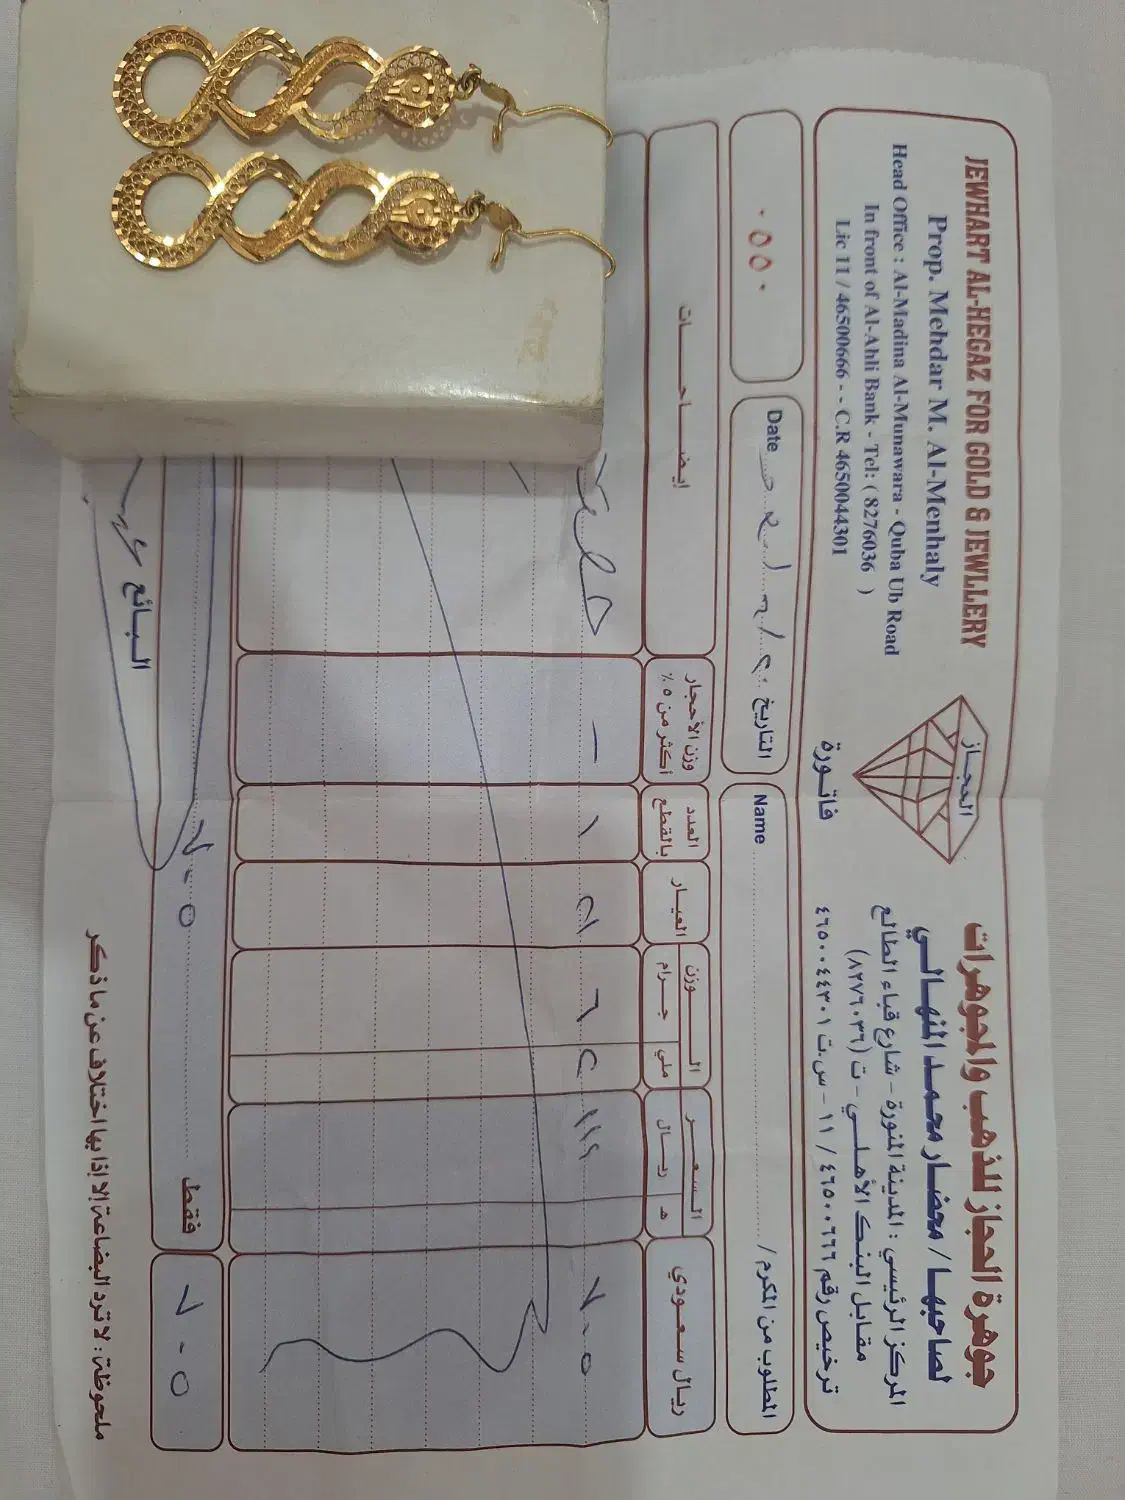 JEWHART AL-HEGAZ FOR GOLD & JEWLLERY
Prop. Mehdar M. Al-Menhaly
Head Office : Al-Madina Al-Munawara - Quba Ub Road
In front of Al-Ahli Bank - Tel: ( 8276036 )
Lic 11 / 46500666 - - C.R 4650044301
الحجاز
فاتورة
جوهرة الحجاز للذهب والمجوهرات
لصاحبها / محضار محمد المنهالي
المركز الرئيسي : المدينة المنورة - شارع قباء الطالع
مقابل البنك الأهلي - ت (٨٢٧٦٠٣٦)
ترخيص رقم ٤٦٥٠٠٦٦٦ / ١١ - س.ت ٤٦٥٠٠٤٤٣٠١
٠٥٥٠
Date التاريخ
Name المطلوب من المكرم /
إيضاحات
وزن الأحجار أكثر من ٥ ٪
العدد بالقطع
العيار
الوزن
جرام ملي
السعر
ريال هـ
ريال سعودي
١ ٢١ ٦ ٢ ١١٩ ٧٠٥
فقط ٧٠٥
٧٠٥
البائع
ملحوظة : لا ترد البضاعة إلا إذا بها اختلاف عن ما ذكر